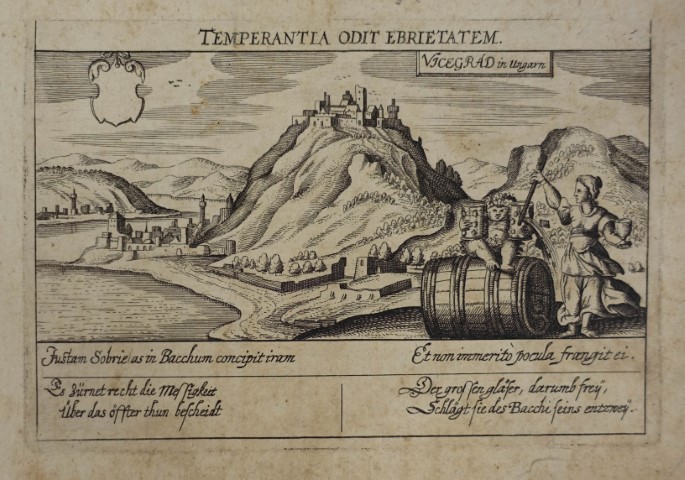 TEMPERANTIA ODIT EBRIETATEM.
VICEGRAD in Ungarn
Justam Sobrietas in Bacchum concipit iram
Et non immeritò pocula frangit ei.
Es zürnet recht die Messigkeit
Über das öffter thun bescheidt
Der grossen gläser, darumb frey,
Schlägt sie des Bacchi seins entzwey.